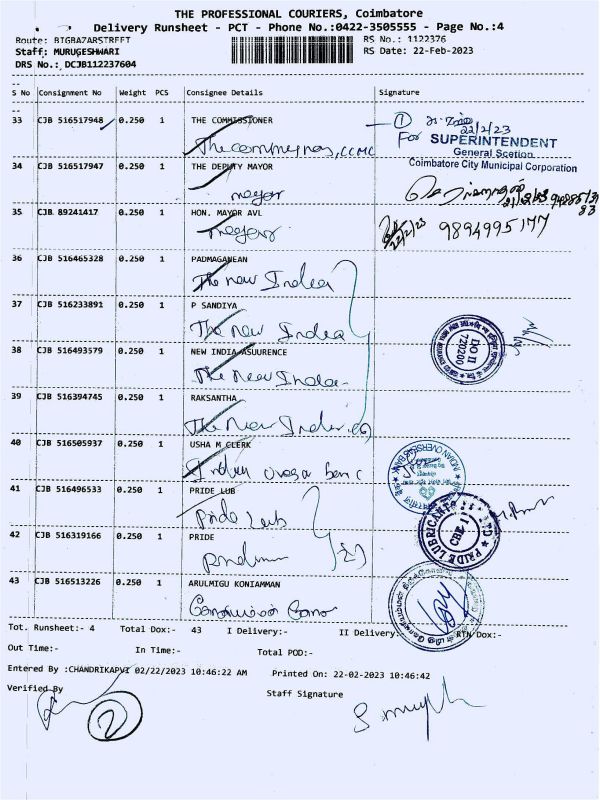 THE PROFESSIONAL COURIERS, Coimbatore
Delivery Runsheet - PCT - Phone No.:0422-3505555 - Page No.:4
Route: BIGBAZARSTREET
RS No.: 1122376
Staff: MURUGESHWARI
RS Date: 22-Feb-2023
DRS No.: DCJB112237604
S No Consignment No Weight PCS Consignee Details Signature
33 CJB 516517948 0.250 1 THE COMMISSIONER
① 22/2/23
For SUPERINTENDENT
General Scetion
Coimbatore City Municipal Corporation
34 CJB 516517947 0.250 1 THE DEPUTY MAYOR
mayor
35 CJB 89241417 0.250 1 HON. MAYOR AVL
22/2/23 9894995177
36 CJB 516465328 0.250 1 PADMAGANEAN
The new India
37 CJB 516233891 0.250 1 P SANDIYA
The new India
DO II
720200
38 CJB 516493579 0.250 1 NEW INDIA ASUURENCE
The New India
39 CJB 516394745 0.250 1 RAKSANTHA
The New India
40 CJB 516505937 0.250 1 USHA M CLERK
INDIAN OVERSEAS BANK
41 CJB 516496533 0.250 1 PRIDE LUB
Pride Lub
PRIDE LUBRICANTS
CBE-1
42 CJB 516319166 0.250 1 PRIDE
43 CJB 516513226 0.250 1 ARULMIGU KONIAMMAN
Tot. Runsheet:- 4 Total Dox:- 43 I Delivery:- II Delivery: RTN Dox:-
Out Time:- In Time:- Total POD:-
Entered By :CHANDRIKAPVI 02/22/2023 10:46:22 AM Printed On: 22-02-2023 10:46:42
Verified By Staff Signature
②